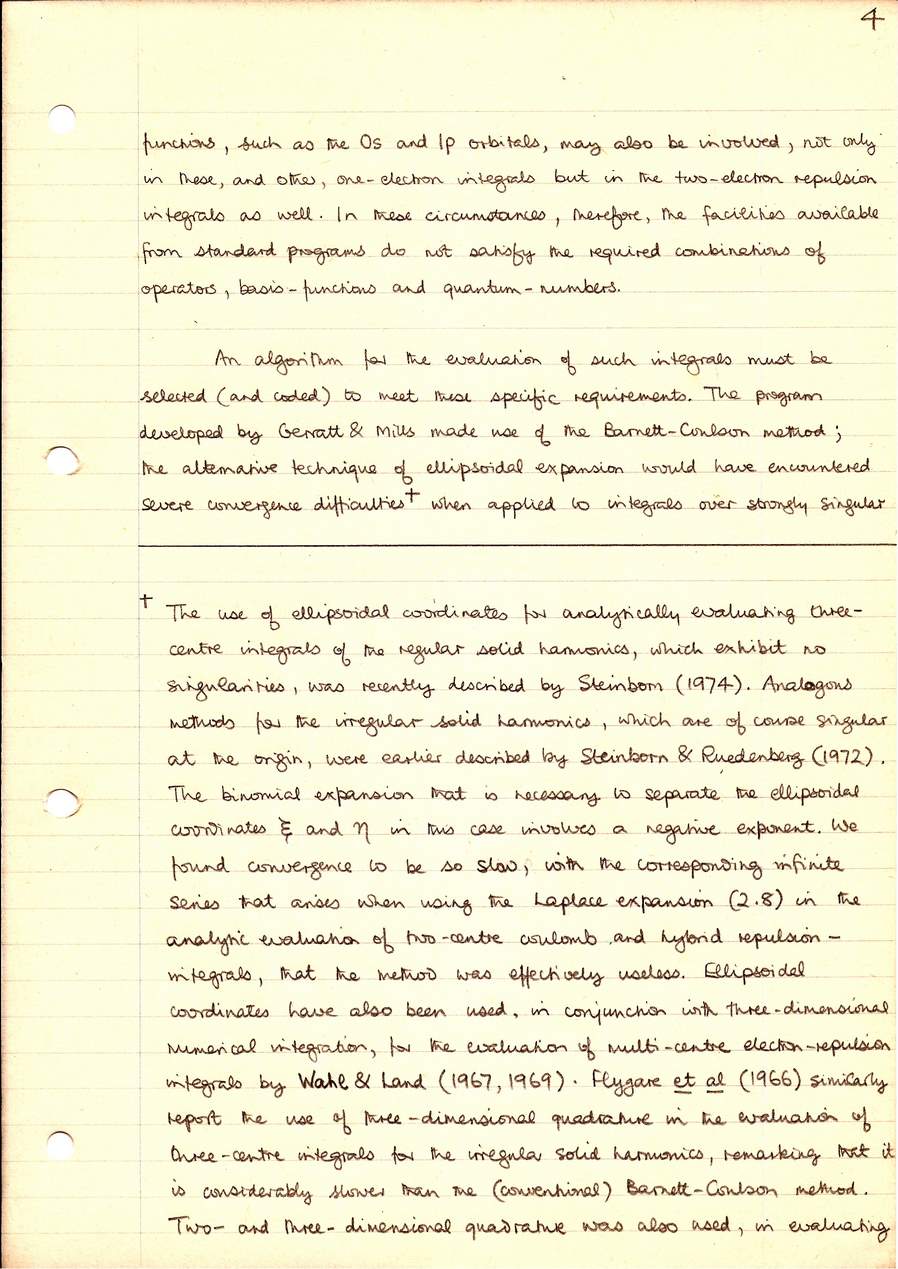 4
functions, such as the 0s and 1p orbitals, may also be involved, not only
in these, and other, one-electron integrals but in the two-electron repulsion
integrals as well. In these circumstances, therefore, the facilities available
from standard programs do not satisfy the required combinations of
operators, basis-functions and quantum-numbers.
An algorithm for the evaluation of such integrals must be
selected (and coded) to meet these specific requirements. The program
developed by Gerratt & Mills made use of the Barnett-Coulson method;
the alternative technique of ellipsoidal expansion would have encountered
severe convergence difficulties† when applied to integrals over strongly singular
† The use of ellipsoidal coordinates for analytically evaluating three-
centre integrals of the regular solid harmonics, which exhibit no
singularities, was recently described by Steinborn (1974). Analogous
methods for the irregular solid harmonics, which are of course singular
at the origin, were earlier described by Steinborn & Ruedenberg (1972).
The binomial expansion that is necessary to separate the ellipsoidal
coordinates ξ and η in this case involves a negative exponent. We
found convergence to be so slow, with the corresponding infinite
series that arises when using the Laplace expansion (2.8) in the
analytic evaluation of two-centre coulomb and hybrid repulsion-
integrals, that the method was effectively useless. Ellipsoidal
coordinates have also been used, in conjunction with three-dimensional
numerical integration, for the evaluation of multi-centre electron-repulsion
integrals by Wahl & Land (1967, 1969). Flygare et al (1966) similarly
report the use of three-dimensional quadrature in the evaluation of
three-centre integrals for the irregular solid harmonics, remarking that it
is considerably slower than the (conventional) Barnett-Coulson method.
Two- and three-dimensional quadrature was also used, in evaluating